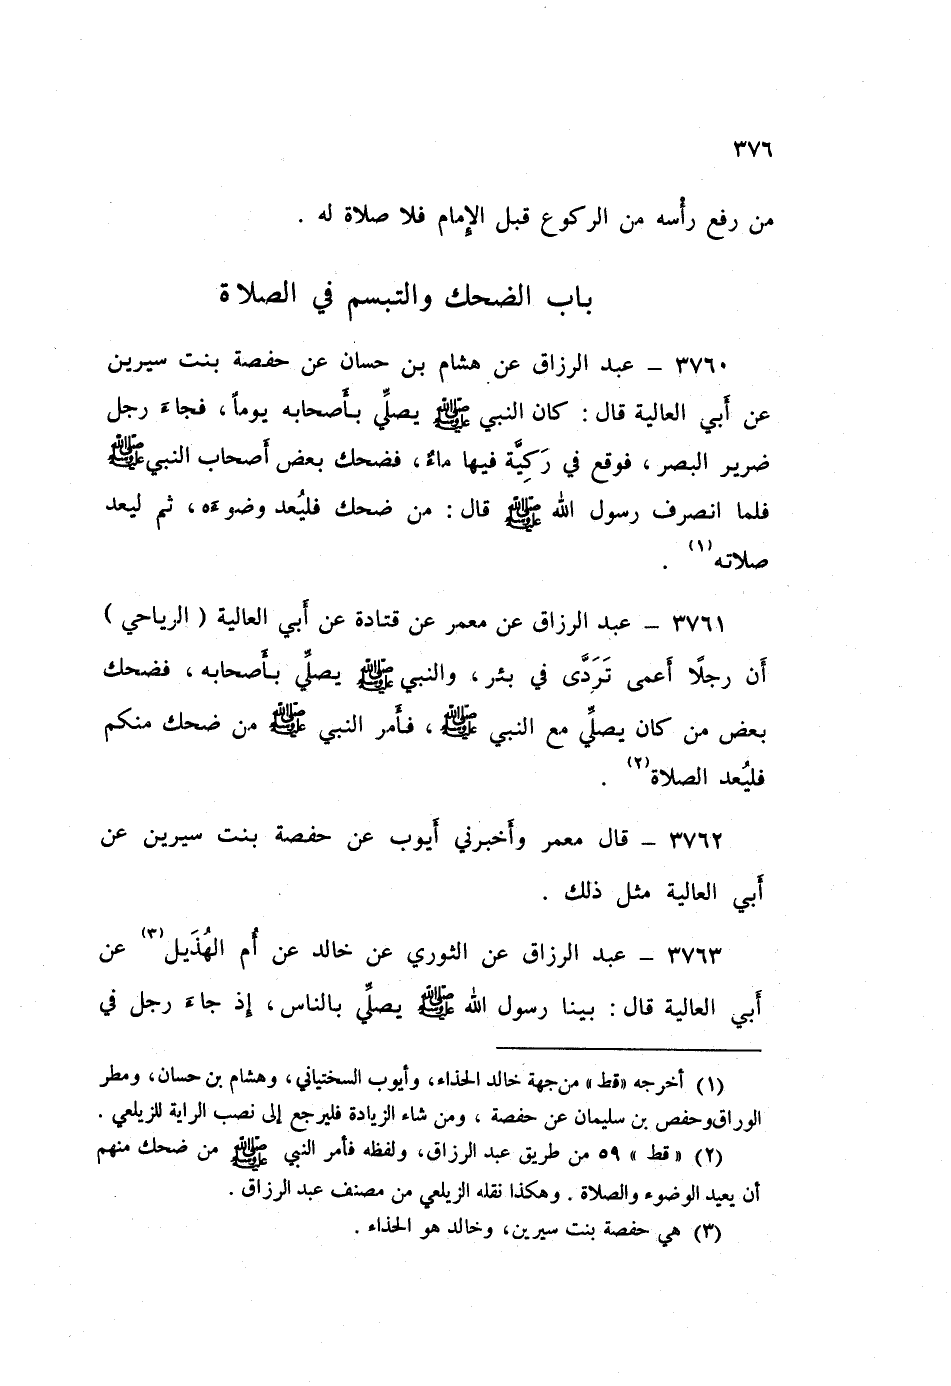 ٣٧٦
من رفع رأْسه من الركوع قبل الإِمام فلا صلاة له .
باب الضحك والتبسم في الصلاة
٣٧٦٠ – عبد الرزاق عن هشام بن حسان عن حفصة بنت سيرين
عن أَبي العالية قال : كان النبي ﷺ يصلِّي بأَصحابه يوماً ، فجاءَ رجل
ضرير البصر ، فوقع في رَكِيَّة فيها ماءٌ ، فضحك بعض أَصحاب النبي ﷺ
فلما انصرف رسول الله ﷺ قال : من ضحك فليُعد وضوءَه ، ثم ليعد
صلاته(١) .
٣٧٦١ – عبد الرزاق عن معمر عن قتادة عن أَبي العالية ( الرياحي )
أَن رجلًا أَعمى تَرَدَّى في بئر ، والنبي ﷺ يصلِّي بأَصحابه ، فضحك
بعض من كان يصلِّي مع النبي ﷺ ، فأَمر النبي ﷺ من ضحك منكم
فليُعد الصلاة(٢) .
٣٧٦٢ – قال معمر وأَخبرني أَيوب عن حفصة بنت سيرين عن
أَبي العالية مثل ذلك .
٣٧٦٣ – عبد الرزاق عن الثوري عن خالد عن أُم الهُذَيل(٣) عن
أَبي العالية قال : بينا رسول الله ﷺ يصلِّي بالناس ، إِذ جاءَ رجل في
(١) أخرجه «قط» من جهة خالد الحذاء، وأيوب السختياني، وهشام بن حسان، ومطر
الوراق وحفص بن سليمان عن حفصة ، ومن شاء الزيادة فليرجع إلى نصب الراية للزيلعي .
(٢) « قط » ٥٩ من طريق عبد الرزاق، ولفظه فأمر النبي ﷺ من ضحك منهم
أن يعيد الوضوء والصلاة . وهكذا نقله الزيلعي من مصنف عبد الرزاق .
(٣) هي حفصة بنت سيرين، وخالد هو الحذاء .